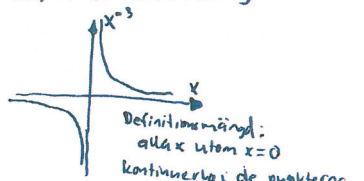 x⁻³
x
Definitionsmängd:
alla x utom x=0
kontinuerlig i de punkterna